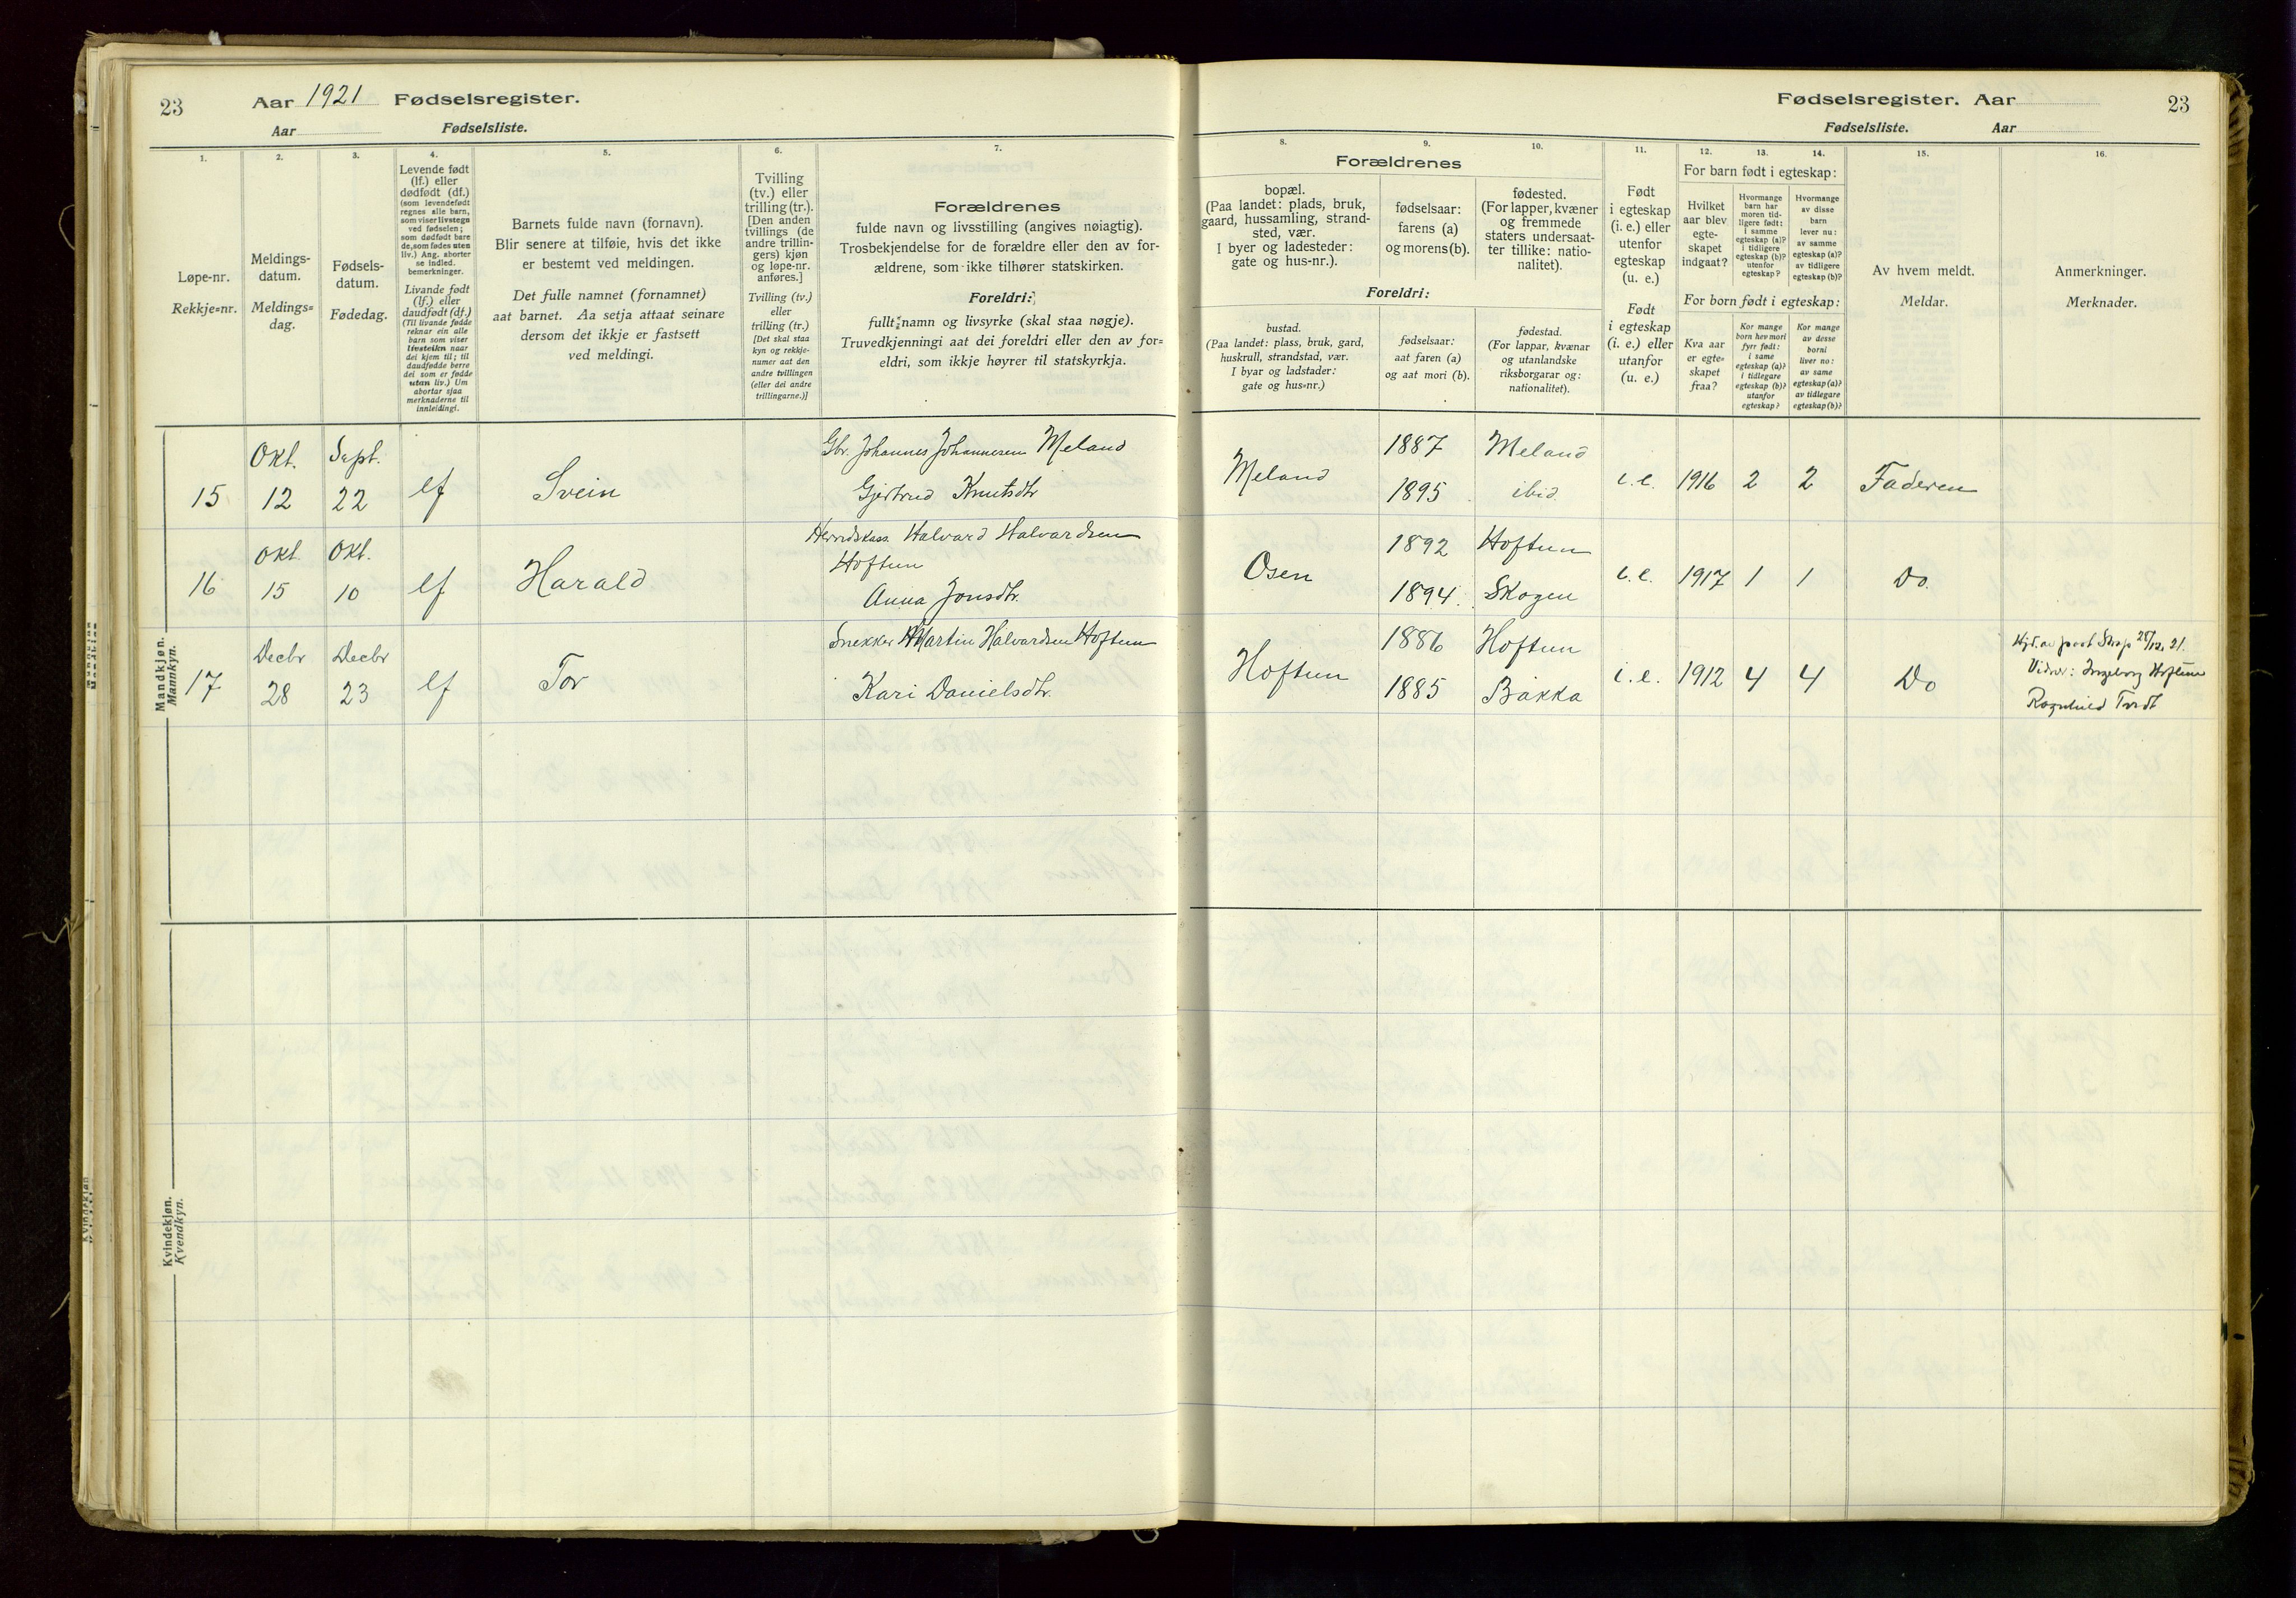 23
Aar 1921 Fødselsregister.
Aar Fødselsliste.
1.
2.
3.
4.
5.
6.
7.
Løpe-nr.
Rekkje=nr.
Meldings-
datum.
Meldings=
dag.
Fødsels-
datum.
Fødedag.
Levende født
(lf.) eller
dødfødt (df.)
(som levendefødt
regnes alle barn,
som viser livstegn
ved fødselen;
som dødfødt bare
de, som fødes uten
liv.) Ang. aborter
se indled.
bemerkninger.
Livande født
(lf.) eller
daudfødt (df.)
(Til livande fødde
reknar ein alle
barn som viser
livsteikn naar
dei kjem til; til
daudfødde berre
dei som er fødde
utan liv.) Um
abortar sjaa
merknaderne til
innleidingi.
Barnets fulde navn (fornavn).
Blir senere at tilføie, hvis det ikke
er bestemt ved meldingen.
Det fulle namnet (fornamnet)
aat barnet. Aa setja attaat seinare
dersom det ikkje er fastsett
ved meldingi.
Tvilling
(tv.) eller
trilling (tr.).
[Den anden
tvillings (de
andre trillin-
gers) kjøn
og løpe-nr.
anføres.]
Tvilling (tv.)
eller
trilling (tr.)
[Det skal staa
kyn og rekkje-
numer aat den
andre tvillingen
(eller dei andre
trillingarne.)]
Forældrenes
fulde navn og livsstilling (angives nøiagtig).
Trosbekjendelse for de forældre eller den av for-
ældrene, som ikke tilhører statskirken.
Foreldri:
fullt namn og livsyrke (skal staa nøgje).
Truvedkjenningi aat dei foreldri eller den av for=
eldri, som ikkje høyrer til statskyrkja.
Mandkjøn.
Mannkyn.
15
Okt.
12
Sept.
22
lf
Svein
Gbr. Johannes Johannesen Meland
Gjertrud Knutsdtr
16
Okt.
15
Okt.
10
lf
Harald
Herredskass. Halvard Halvardsen
Hoftun
Anna Jonsdtr.
17
Decbr
28
Decbr
23
lf
Tor
Snekker Martin Halvardsen Hoftun
Kari Danielsdtr.
Kvindekjøn.
Kvendkyn.
Fødselsregister. Aar
23
Fødselsliste. Aar
8.
9.
10.
11.
12.
13.
14.
15.
16.
Forældrenes
bopæl.
(Paa landet: plads, bruk,
gaard, hussamling, strand-
sted, vær.
I byer og ladesteder:
gate og hus-nr.).
fødselsaar:
farens (a)
og morens (b).
fødested.
(For lapper, kvæner
og fremmede
staters undersaat-
ter tillike: natio-
nalitet).
Foreldri:
bustad.
(Paa landet: plass, bruk, gard,
huskrull, strandstad, vær.
I byar og ladstader:
gate og hus=nr.)
fødselsaar:
aat faren (a)
og aat mori (b).
fødestad.
(For lappar, kvænar
og utanlandske
riksborgarar og:
nationalitet).
Født
i egteskap
(i. e.) eller
utenfor
egteskap
(u. e.)
Født
i egteskap
(i. e.) eller
utanfor
(u. e.)
For barn født i egteskap:
Hvilket
aar blev
egte-
skapet
indgaat?
Hvormange
barn har
moren tid-
ligere født:
i samme
egteskap (a)?
i tidligere
egteskap (b)?
utenfor
egteskap?
Hvormange
av disse
barn
lever nu:
av samme
egteskap (a)?
av tidligere
egteskap (b)?
For born født i egteskap:
Kva aar
er egte=
skapet
fraa?
Kor mange
born hev mori
fyrr født:
i same
egteskap (a)?
i tidlegare
egteskap (b)?
utanfor
egteskap?
Kor mange
av desse
borni
liver no:
av same
egteskap (a)?
av tidlegare
egteskap (b)?
Av hvem meldt.
Meldar.
Anmerkninger.
Merknader.
Meland
1887
1895
Meland
ibid.
i.e.
1916
2
2
Faderen
Osen
1892
1894
Hoftun
Skogen
i.e.
1917
1
1
Do.
Hoftun
1886
1885
Hoftun
Bakka
i.e.
1912
4
4
Do
28/12. 21.
Vidner: Ingeborg Hoftun
Ragnhild